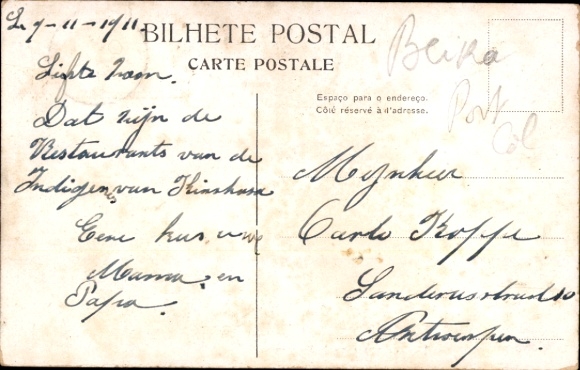 L. 9-11-1911.
BILHETE POSTAL
CARTE POSTALE
Espaço para o endereço.
Côté réservé à l'adresse.
Beira
Port
Col
Liefste
Dat zijn de
Restaurants van de
Indigenes van Kinshasa
Eene kus uwe
Mama en
Papa.
Mynheer
Carlo Koffe
Sanderusstraat 10
Antwerpen.